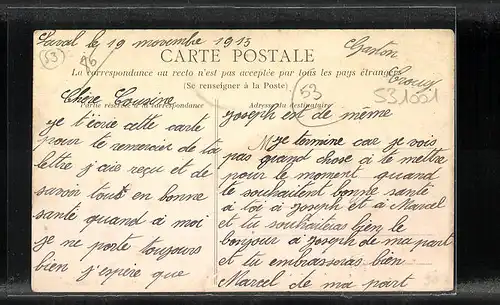 Laval le 19 novembre 1913
(53)
86
CARTE POSTALE
Gaston
Crouix
La correspondance au recto n'est pas acceptée par tous les pays étrangers
(Se renseigner à la Poste)
53
531001
Partie réservée à la correspondance
Adresse du destinataire
Chère Cousine
je t'écrie cette carte
pour te remercier de ta
lettre j'ais reçu et de
savoir tout en bonne
santé quand à moi
je me porte toujours
bien j'espère que
Joseph est de même
je termine car je vois
pas grand chose à te mettre
pour le moment quand
te souhaitent bonne santé
à toi à Joseph et à Marcel
et tu souhaiteras bien le
bonjour à Joseph de ma part
et tu embrasseras bien
Marcel de ma part